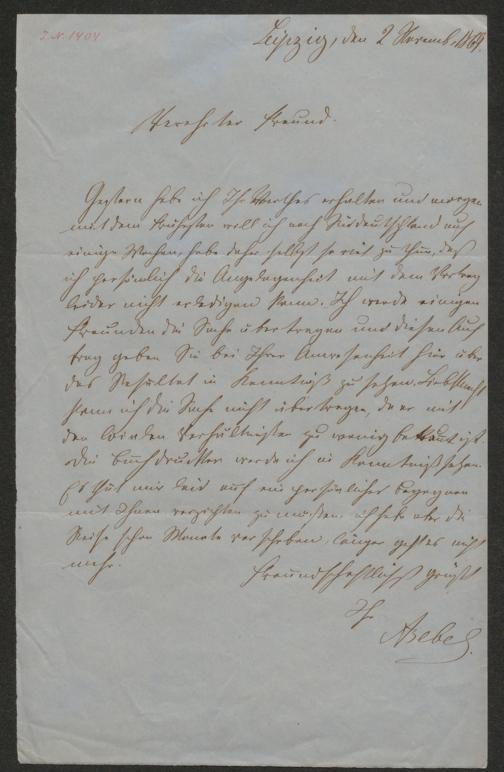 J.N. 1404
Leipzig, den 2 Novemb. 1869.
Verehrter Freund.
Gestern habe ich Ihr Werthes erhalten und morgen
mit dem Frühesten will ich nach Süddeutschland auf
einige Wochen, habe daher selbst so viel zu thun, daß
ich persönlich die Angelegenheit mit dem Vortrag
leider nicht erledigen kann. Ich werde einigen
Freunden die Sache übertragen und diesen Auf
trag geben Sie bei Ihrer Anwesenheit hier über
das Resultat in Kenntniß zu setzen. Liebknecht
kann ich die Sache nicht übertragen, da er mit
den Verhältnissen zu wenig bekannt ist.
Die Buchdrucker werde ich in Kenntniß setzen.
Es thut mir leid auf ein persönliches Begegnen
mit Ihnen verzichten zu müssen, ich habe aber die
Reise schon Monate verschoben, länger geht es nicht
mehr.
Freundschaftlichst grüßt
Ihr
ABebel.